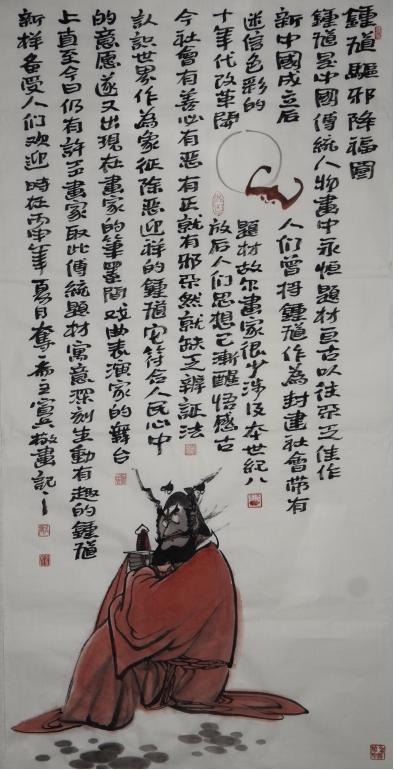 鍾馗驅邪降福圖
鍾馗是中國傳統人物畫中永恒題材亘古以往不乏佳作
新中國成立后人们曾將鍾馗作為封建社會带有
迷信色彩的題材故尔畫家很少涉及本世紀八
十年代改革開放后人们思想已漸醒悟感古
今社會有善心有恶有正就有邪不然就缺乏辨証法
认识世界作為象征除恶迎祥的鍾馗它符合人民心中
的意愿遂又出現在畫家的筆墨間戏曲表演家的舞台
上直至今日仍有許多畫家取此傳統題材寓意深刻生動有趣的鍾馗
新樣备受人们欢迎 時在丙申年夏月 主寅 畫記之